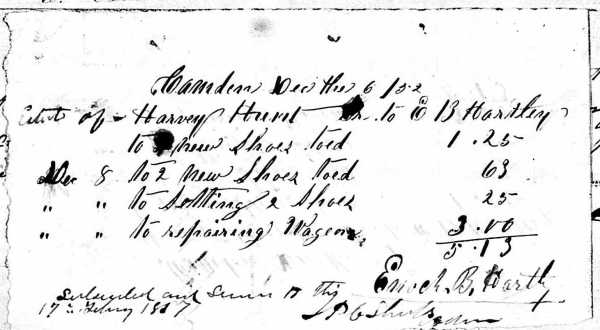 Camden Dec the 6 / 52
Estate of Harvey Hunt Dr. to E B Hartley
to new Shoes toed 1.25
Dec 8 to 2 new Shoes toed 63
" " to Setting 2 Shoes 25
" " to repairing Wagon 3.00
5.13
Enoch B. Hartly
and Sworn to this
17th